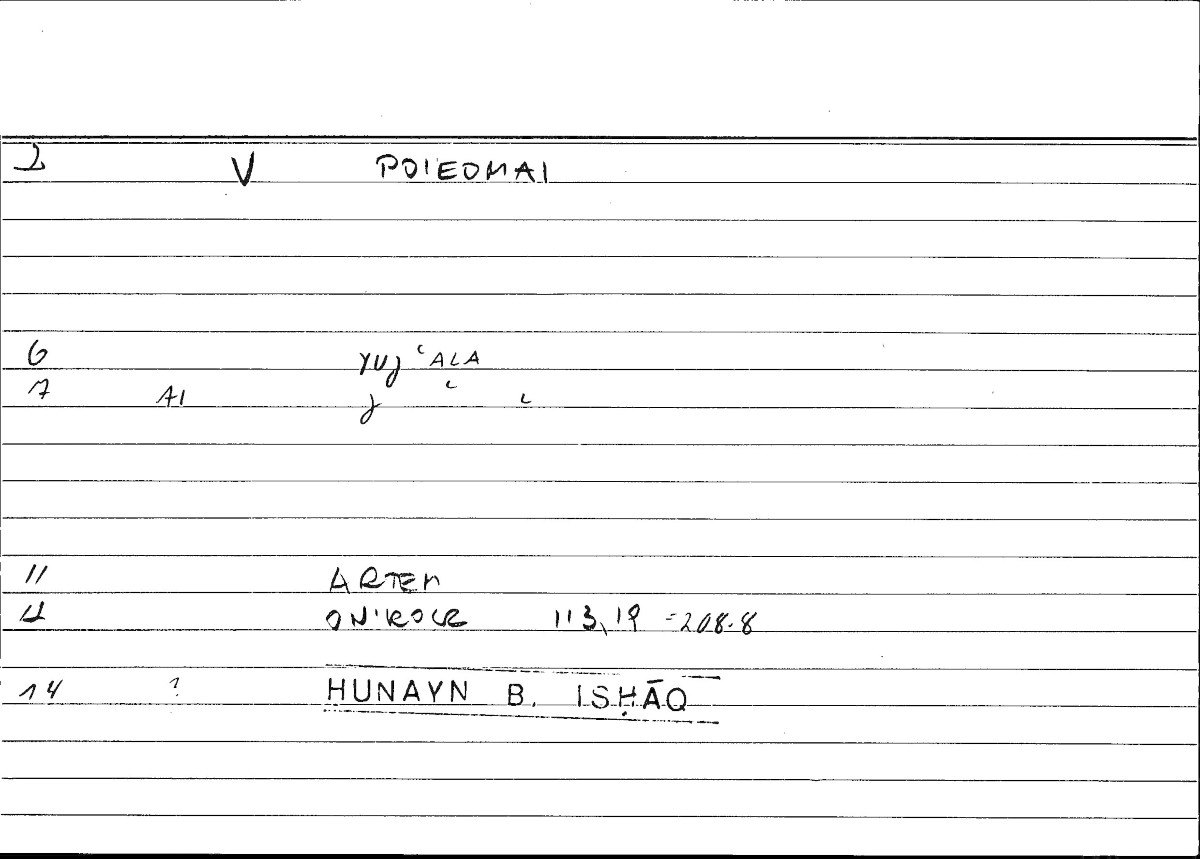 2 V POIEOMAI
6 YUJ ʿALA
7 A1 J ʿ L
11 ARTEM
12 ONIROCR 113,19 =208.8
14 ? HUNAYN B. ISḤĀQ